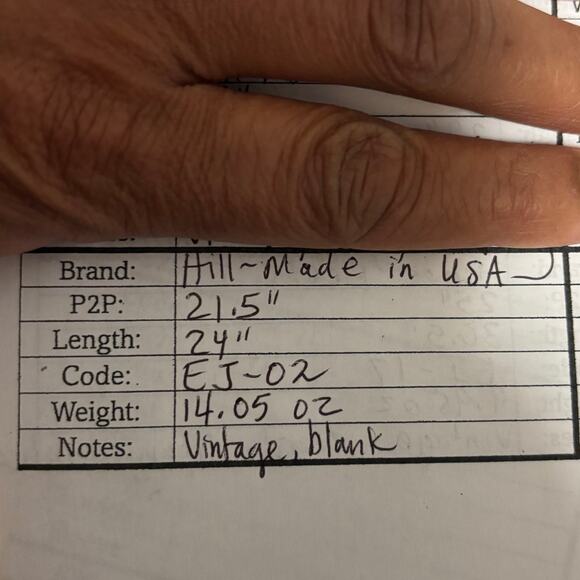 Brand: Hill-Made in USA
P2P: 21.5"
Length: 24"
Code: EJ-02
Weight: 14.05 oz
Notes: Vintage, blank